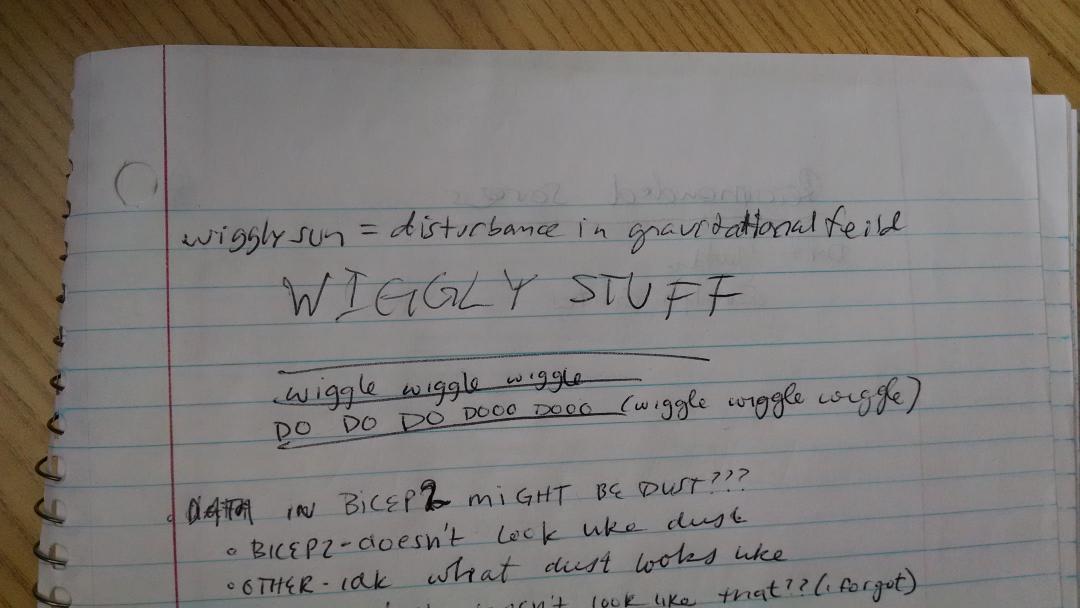 wiggly sun = disturbance in gravitational feild
WIGGLY STUFF
wiggle wiggle wiggle
DO DO DO DOOO DOOO (wiggle wiggle wiggle)
DATA IN BICEP2 MIGHT BE DUST???
BICEP2-doesn't look like dust
OTHER-idk what dust looks like
look like that?? (i forgot)